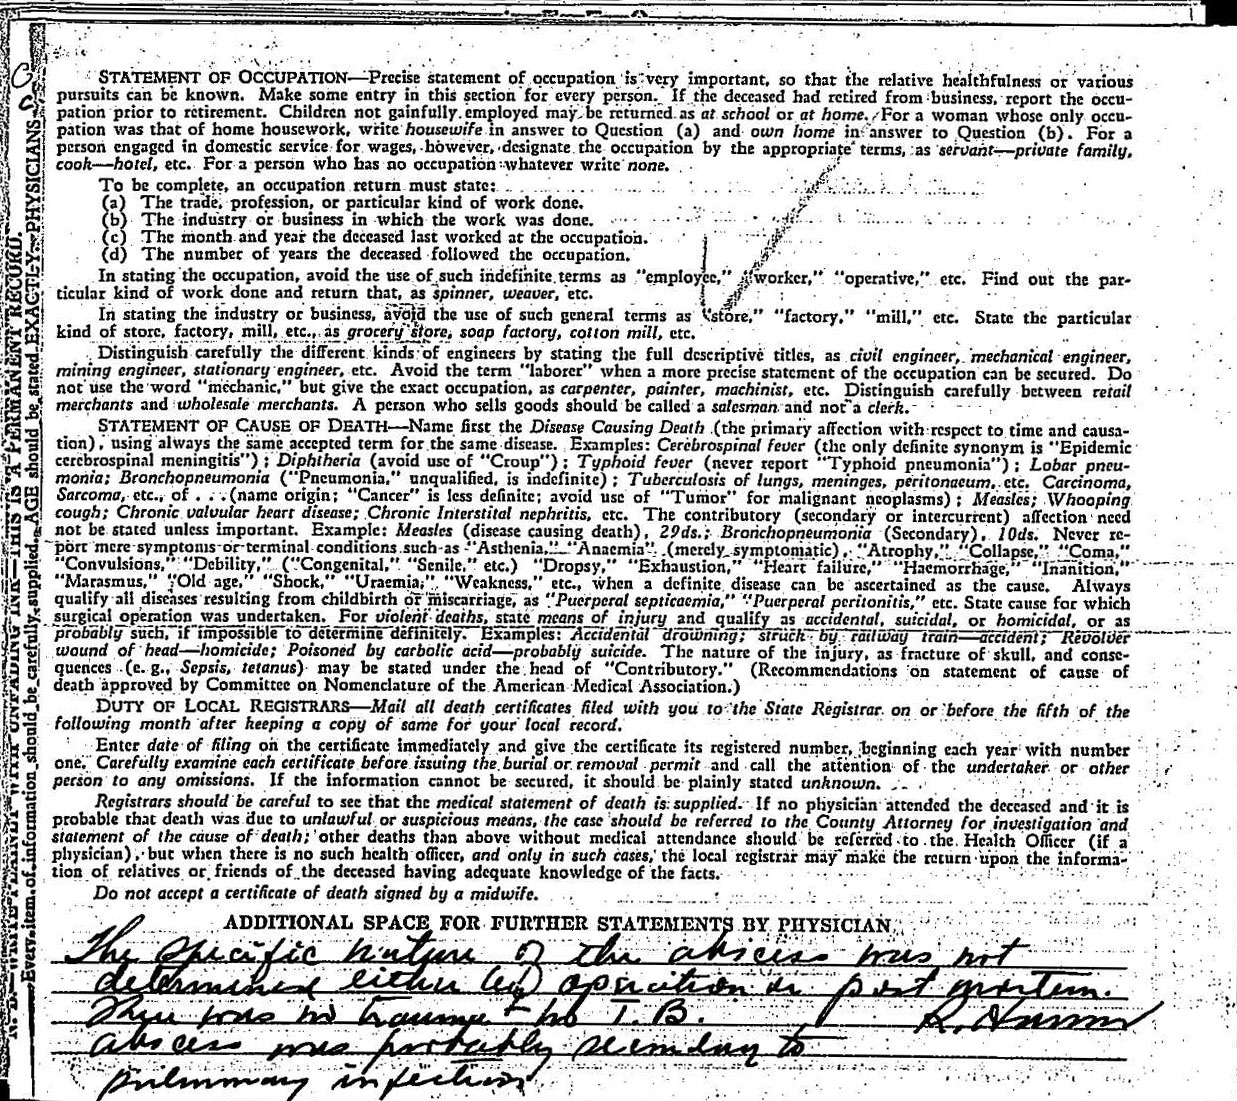 STATEMENT OF OCCUPATION—Precise statement of occupation is very important, so that the relative healthfulness or various
pursuits can be known. Make some entry in this section for every person. If the deceased had retired from business, report the occu-
pation prior to retirement. Children not gainfully employed may be returned as at school or at home. For a woman whose only occu-
pation was that of home housework, write housewife in answer to Question (a) and own home in answer to Question (b). For a
person engaged in domestic service for wages, however, designate the occupation by the appropriate terms, as servant—private family,
cook—hotel, etc. For a person who has no occupation whatever write none.
To be complete, an occupation return must state:
(a) The trade, profession, or particular kind of work done.
(b) The industry or business in which the work was done.
(c) The month and year the deceased last worked at the occupation.
(d) The number of years the deceased followed the occupation.
In stating the occupation, avoid the use of such indefinite terms as "employee," "worker," "operative," etc. Find out the par-
ticular kind of work done and return that, as spinner, weaver, etc.
In stating the industry or business, avoid the use of such general terms as "store," "factory," "mill," etc. State the particular
kind of store, factory, mill, etc., as grocery store, soap factory, cotton mill, etc.
Distinguish carefully the different kinds of engineers by stating the full descriptive titles, as civil engineer, mechanical engineer,
mining engineer, stationary engineer, etc. Avoid the term "laborer" when a more precise statement of the occupation can be secured. Do
not use the word "mechanic," but give the exact occupation, as carpenter, painter, machinist, etc. Distinguish carefully between retail
merchants and wholesale merchants. A person who sells goods should be called a salesman and not a clerk.
STATEMENT OF CAUSE OF DEATH—Name first the Disease Causing Death (the primary affection with respect to time and causa-
tion), using always the same accepted term for the same disease. Examples: Cerebrospinal fever (the only definite synonym is "Epidemic
cerebrospinal meningitis"); Diphtheria (avoid use of "Croup"); Typhoid fever (never report "Typhoid pneumonia"); Lobar pneu-
monia; Bronchopneumonia ("Pneumonia," unqualified, is indefinite); Tuberculosis of lungs, meninges, peritonaeum, etc. Carcinoma,
Sarcoma, etc., of . . . (name origin; "Cancer" is less definite; avoid use of "Tumor" for malignant neoplasms); Measles; Whooping
cough; Chronic valvular heart disease; Chronic Interstital nephritis, etc. The contributory (secondary or intercurrent) affection need
not be stated unless important. Example: Measles (disease causing death), 29ds.; Bronchopneumonia (Secondary), 10ds. Never re-
port mere symptoms or terminal conditions such as "Asthenia," "Anaemia" (merely symptomatic), "Atrophy," "Collapse," "Coma,"
"Convulsions," "Debility," ("Congenital," "Senile," etc.) "Dropsy," "Exhaustion," "Heart failure," "Haemorrhage," "Inanition,"
"Marasmus," "Old age," "Shock," "Uraemia," "Weakness," etc., when a definite disease can be ascertained as the cause. Always
qualify all diseases resulting from childbirth or miscarriage, as "Puerperal septicaemia," "Puerperal peritonitis," etc. State cause for which
surgical operation was undertaken. For violent deaths, state means of injury and qualify as accidental, suicidal, or homicidal, or as
probably such, if impossible to determine definitely. Examples: Accidental drowning; struck by railway train—accident; Revolver
wound of head—homicide; Poisoned by carbolic acid—probably suicide. The nature of the injury, as fracture of skull, and conse-
quences (e. g., Sepsis, tetanus) may be stated under the head of "Contributory." (Recommendations on statement of cause of
death approved by Committee on Nomenclature of the American Medical Association.)
DUTY OF LOCAL REGISTRARS—Mail all death certificates filed with you to the State Registrar on or before the fifth of the
following month after keeping a copy of same for your local record.
Enter date of filing on the certificate immediately and give the certificate its registered number, beginning each year with number
one. Carefully examine each certificate before issuing the burial or removal permit and call the attention of the undertaker or other
person to any omissions. If the information cannot be secured, it should be plainly stated unknown.
Registrars should be careful to see that the medical statement of death is supplied. If no physician attended the deceased and it is
probable that death was due to unlawful or suspicious means, the case should be referred to the County Attorney for investigation and
statement of the cause of death; other deaths than above without medical attendance should be referred to the Health Officer (if a
physician), but when there is no such health officer, and only in such cases, the local registrar may make the return upon the informa-
tion of relatives or friends of the deceased having adequate knowledge of the facts.
Do not accept a certificate of death signed by a midwife.
ADDITIONAL SPACE FOR FURTHER STATEMENTS BY PHYSICIAN
The specific nature of the abscess was not
determined either by operation or post mortem.
There was no trauma + no T.B.
abscess was probably secondary to
pulmonary infection
WRITE PLAINLY WITH UNFADING INK—THIS IS A PERMANENT RECORD.
Every item of information should be carefully supplied. AGE should be stated EXACTLY. PHYSICIANS